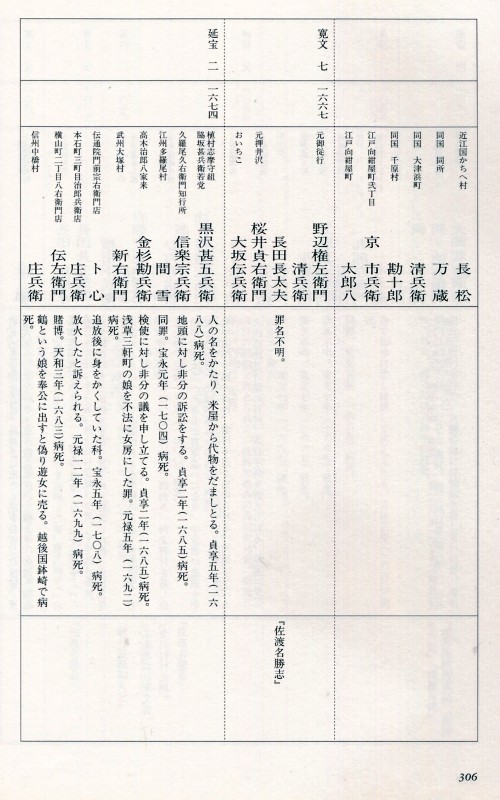 近江国かちへ村 長松
同国 同所 万蔵
同国 大津浜町 清兵衛
同国 千原村 勘十郎
江戸向紺屋町弐丁目 京市兵衛
江戸向紺屋町 太郎八
寛文 七
一六六七
元御徒行 野辺権左衛門
清兵衛
長田長太夫
元押井沢 桜井貞右衛門
おいちこ 大坂伝兵衛
罪名不明。
『佐渡名勝志』
延宝 二
一六七四
植村志摩守組
脇坂甚兵衛若党 黒沢甚五兵衛
人の名をかたり、米屋から代物をだましとる。貞享五年(一六
八八)病死。
久羅尾久右衛門知行所 信楽宗兵衛
地頭に対し非分の訴訟をする。貞享二年(一六八五)病死。
江州多羅尾村 間雪
同罪。宝永元年(一七〇四)病死。
高木治郎八家来 金杉勘兵衛
検使に対し非分の議を申し立てる。貞享二年(一六八五)病死。
武州大塚村 新右衛門
浅草三軒町の娘を不法に女房にした罪。元禄五年(一六九二)
病死。
伝通院門前宗右衛門店 ト心
追放後に身をかくしていた科。宝永五年(一七〇八)病死。
本石町三町目治郎兵衛店 庄兵衛
放火したと訴えられる。元禄一二年(一六九九)病死。
横山町二丁目八右衛門店 伝左衛門
賭博。天和三年(一六八三)病死。
信州中橋村 庄兵衛
鶴という娘を奉公に出すと偽り遊女に売る。越後国鉢崎で病
死。
306